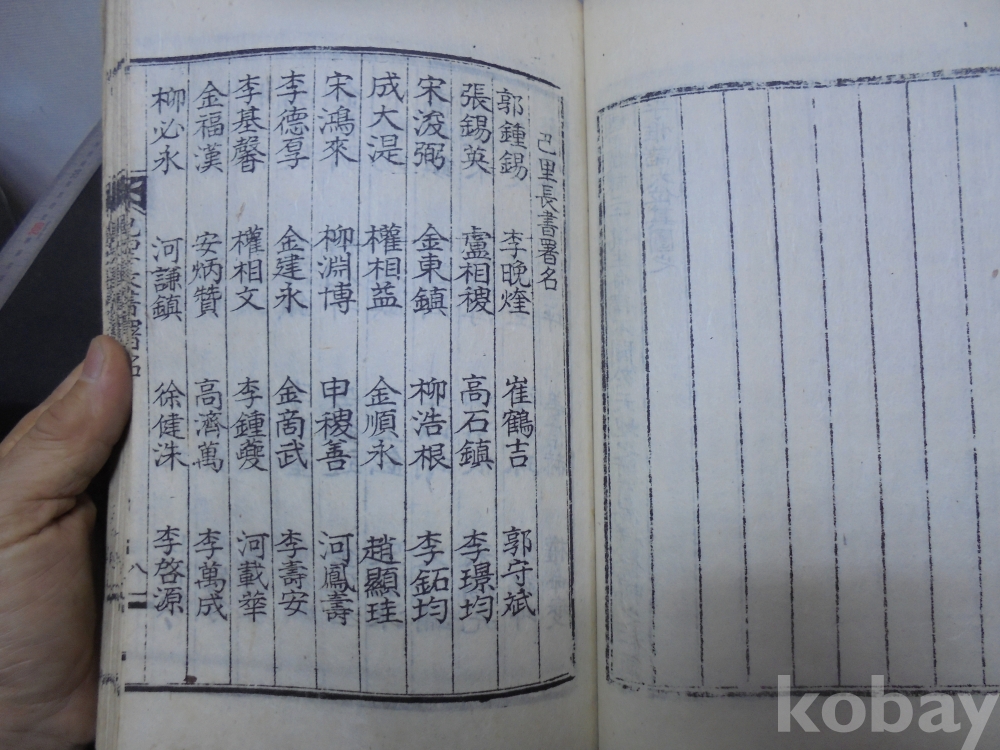 己里長書署名
郭鍾錫 李晚煃 崔鶴吉 郭守斌
張錫英 盧相稷 高石鎮 李璟均
宋浚弼 金東鎮 柳浩根 李鉐均
成大湜 權相益 金順永 趙顯珪
宋鴻來 柳淵博 申稷善 河鳳壽
李德厚 金建永 金商武 李壽安
李基馨 權相文 李鍾夔 河載華
金福漢 安炳瓚 高濟萬 李萬成
柳必永 河謙鎮 徐健洙 李啓源
長書署名
八
kobay